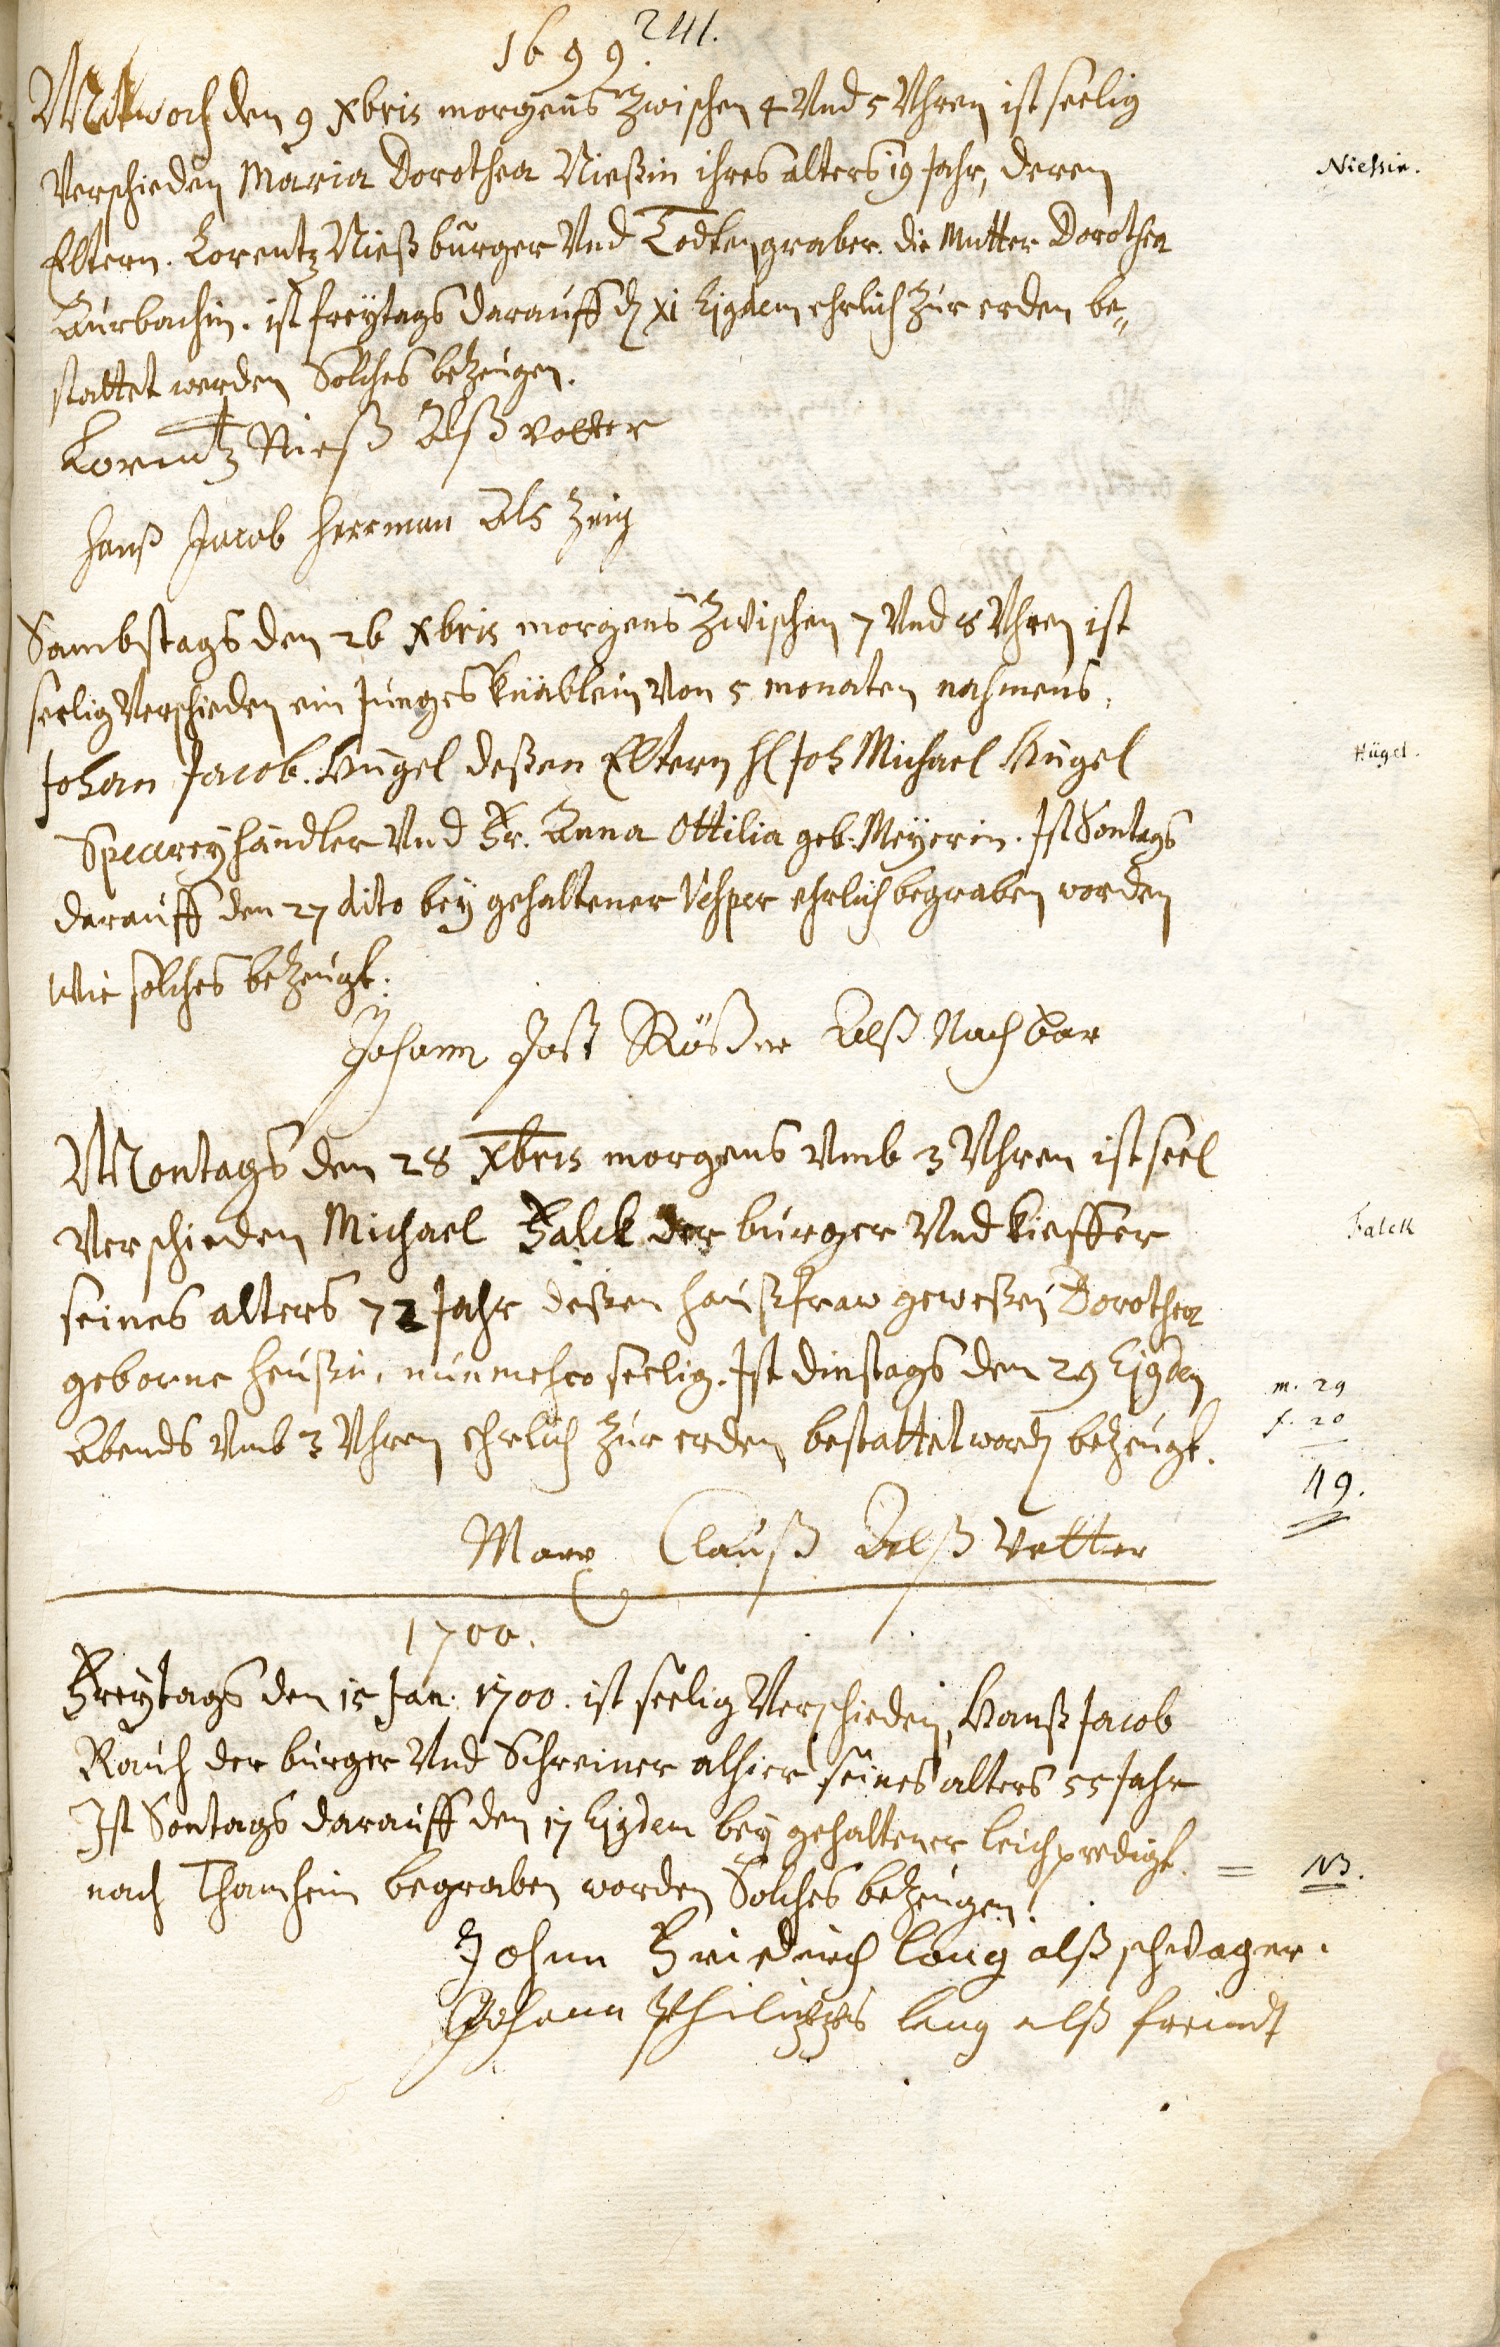 241.
1699.
Mitwoch den 9 Xbris morgens Zwischen 4 Vnd 5 Vhren ist seelig
Verschieden Maria Dorothea Nießin ihres alters 19 Jahr, deren
Eltern. Lorentz Nieß burger Vnd Todtengraber. die Mutter Dorothea
Aurbachin. ist freÿtags darauff d xi Ejgdem ehrlich Zur erden be„
stattet worden Solches bezeugen.
Lorentz Nieß Alß vatter
Hanß Jacob Herrman Als Zeig
Sambstags den 26 Xbris morgens Zwischen 7 Vnd 8 Vhren ist
seelig Verschieden ein Junges Knäblein Von 5 monaten nahmens,
Johan Jacob. Hügel deßen Eltern H Joh Michael Hügel
Specereÿhändler Vnd Fr. Anna Ottilia geb. Meÿerin. Ist Sontags
darauff den 27 dito beÿ gehaltener Vesper ehrlich begraben worden
Wie solches bezeugt.
Johann Jost Rößner Alß Nachbar
Montags den 28 Xbris morgens Vmb 3 Vhren ist seel
Verschieden Michael Falck der burger Vnd Kieffer
seines alters 72 Jahr deßen haußfraw geweßen Dorothea
geborne Heußin, nunmehro seelig. Ist dinstags den 29 Ejgdem
Abends Vmb 3 Vhren ehrlich Zur erden bestattet word bezeugt.
Marx Clauß Alß Vetter
1700.
Freÿtags den 15 Jan: 1700. ist seelig Verschieden, Hanß Jacob
Rauch der burger Vnd Schreiner alhier seines alters 55 Jahr
Ist Sontags darauff den 17 Ejgdem beÿ gehaltener leichpredigt.
nach Thanheim begraben worden Solches bezeugen!
Johan Friderich lang alß schwager.
Johann Philipps lang alß freindt
Niessin.
Hügel.
Falck
m. 29
f. 20
49.
= NB.